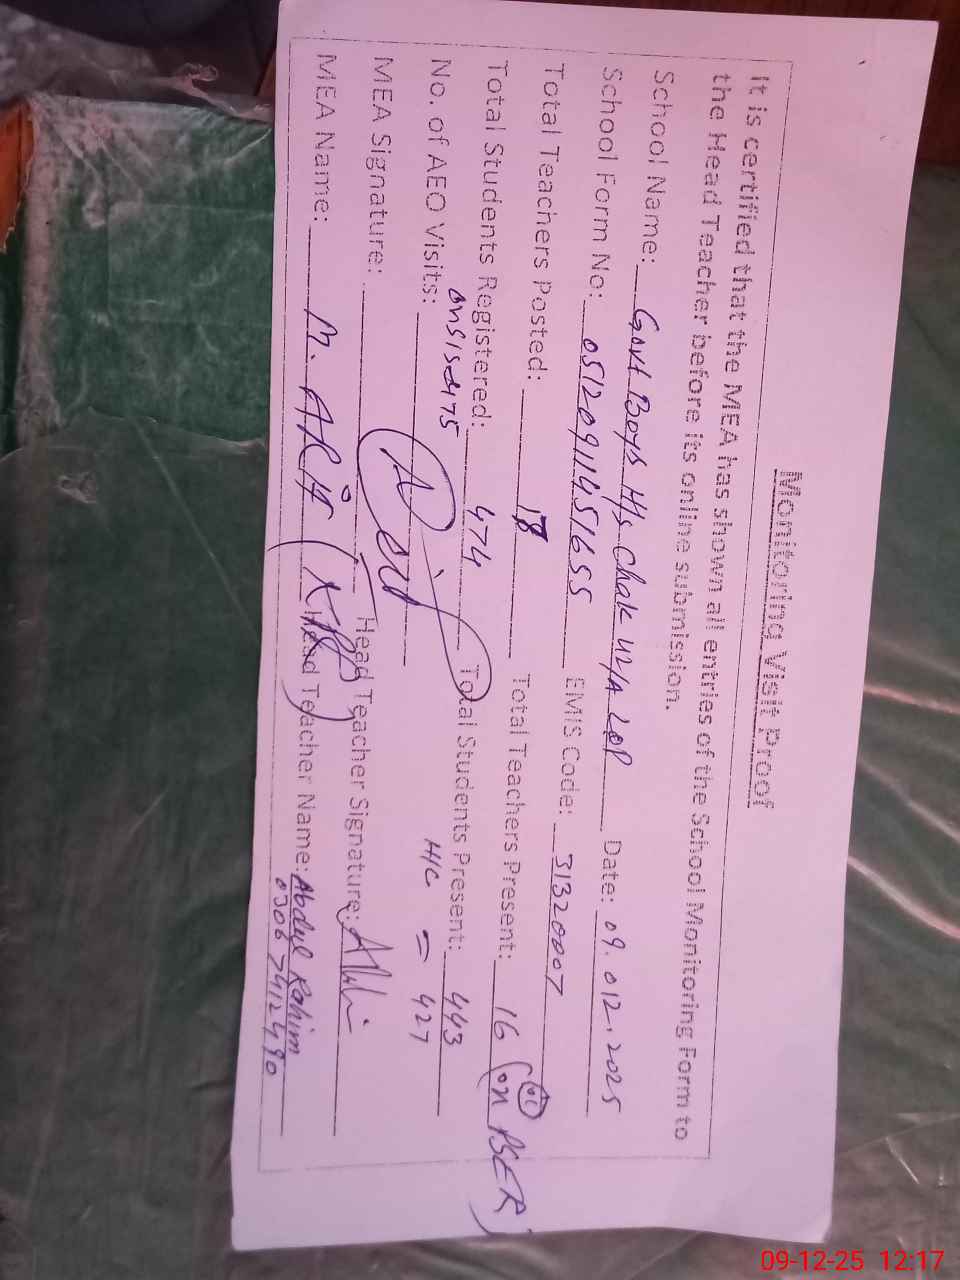 Monitoring Visit Proof
It is certified that the MEA has shown all entries of the School Monitoring Form to
the Head Teacher before its online submission.
School Name: Govt Boys H/S Chak 42/A LQP Date: 09.012.2025
School Form No: 05120911451655 EMIS Code: 31320007
Total Teachers Posted: 18 Total Teachers Present: 16 (01 on PSER)
Total Students Registered: 474 Total Students Present: 443
on SIS=475 H/C = 427
No. of AEO Visits:
MEA Signature: Head Teacher Signature:
MEA Name: M. ARIF Head Teacher Name: Abdul Rahim
03067412490
09-12-25 12:17